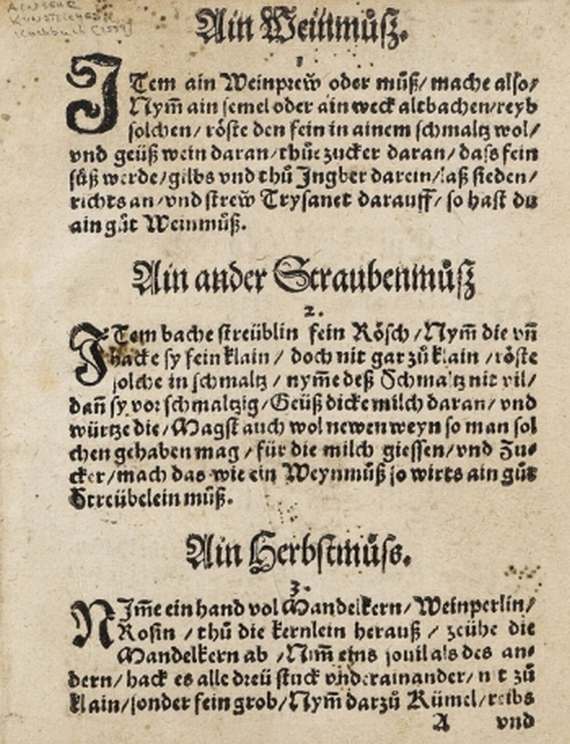 Kochbuch (1559)
Ain Weinmůß.
1
ITem ain Weinprew̃ oder můß/ mache also/
Nym̃ ain semel oder ain weck altbachen/reyb
solchen/ röste den fein in ainem schmaltz wol/
vnd geüß wein daran/thůe zucker daran/ dass fein
süß werde/gilbs vnd thů Jngber darein/laß sieden/
richts an/vnd strew̃ Trysanet darauff/ so hast du
ain gůt Weinmůß.
Ain ander Straubenmůß
2.
ITem bache streüblin fein Rösch/Nym̃ die vñ
hacke sy fein klain/ doch nit gar zů klain /röste
solche in schmaltz / nym̃e deß Schmaltz nit vil/
dañ sy vor schmaltzig/Geüß dicke milch daran/ vnd
würtze die/Magst auch wol newen weyn so man sol
chen gehaben mag/ für die milch giessen/vnd Zu⸗
cker/mach das wie ein Weynmůß so wirts ain gůt
Streübelein můß.
Ain Herbstmůss.
3.
NJm̃e ein hand vol Mandelkern/Weinperlin/
Rosin / thů die kernlein herauß / zeühe die
Mandelkern ab /Nim̃ eins souil als des an⸗
dern/ hack es alle dreü stuck vnderainander/ nit zů
klain/sonder fein grob/Nym̃ darzů Kümel/reibs
A vnd